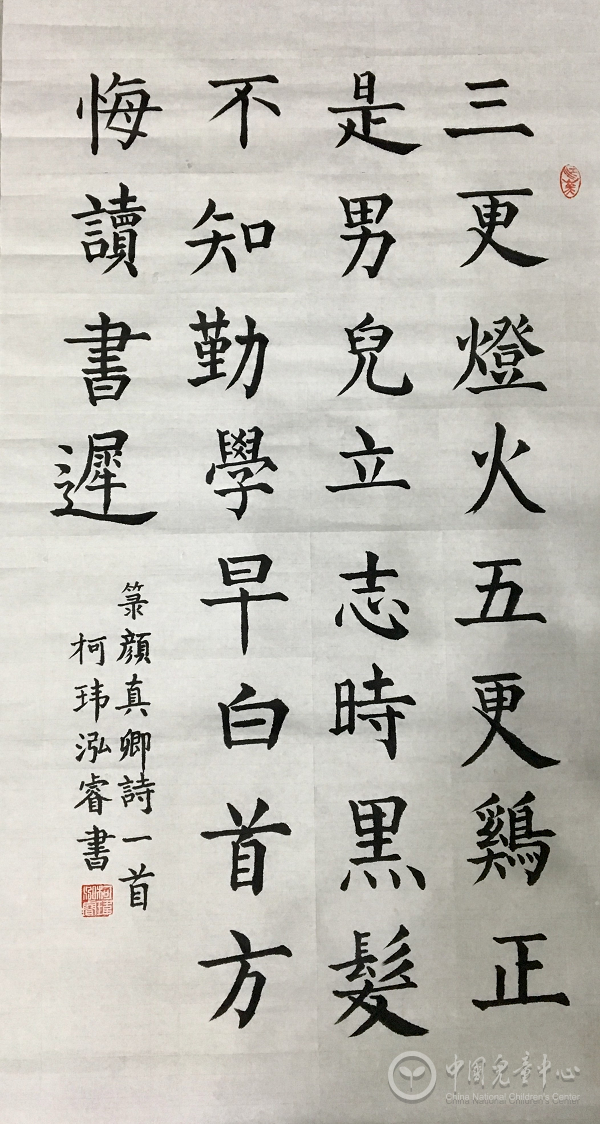 三更燈火五更鷄正
是男兒立志時黒髮
不知勤學早白首方
悔讀書遲
箓顔真卿詩一首
柯玮泓睿書
中國兒童中心
China National Children's Center